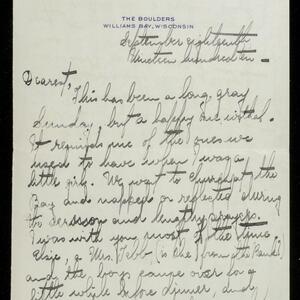 THE BOULDERS
WILLIAMS BAY, WISCONSIN
September eighteenth
Nineteen hundred ten -
Dearest,
This has been a long, gray
Sunday, but a happy one withal.
It reminds me of the ones we
used to have when I was a
little girl. We went to Church at the
Bay and napped or reflected during
the sermon and lengthy prayers.
I was with you most of the time.
Elsie, a Mrs. (is she from the Bank?)
and the boys came over for a
little while before dinner and